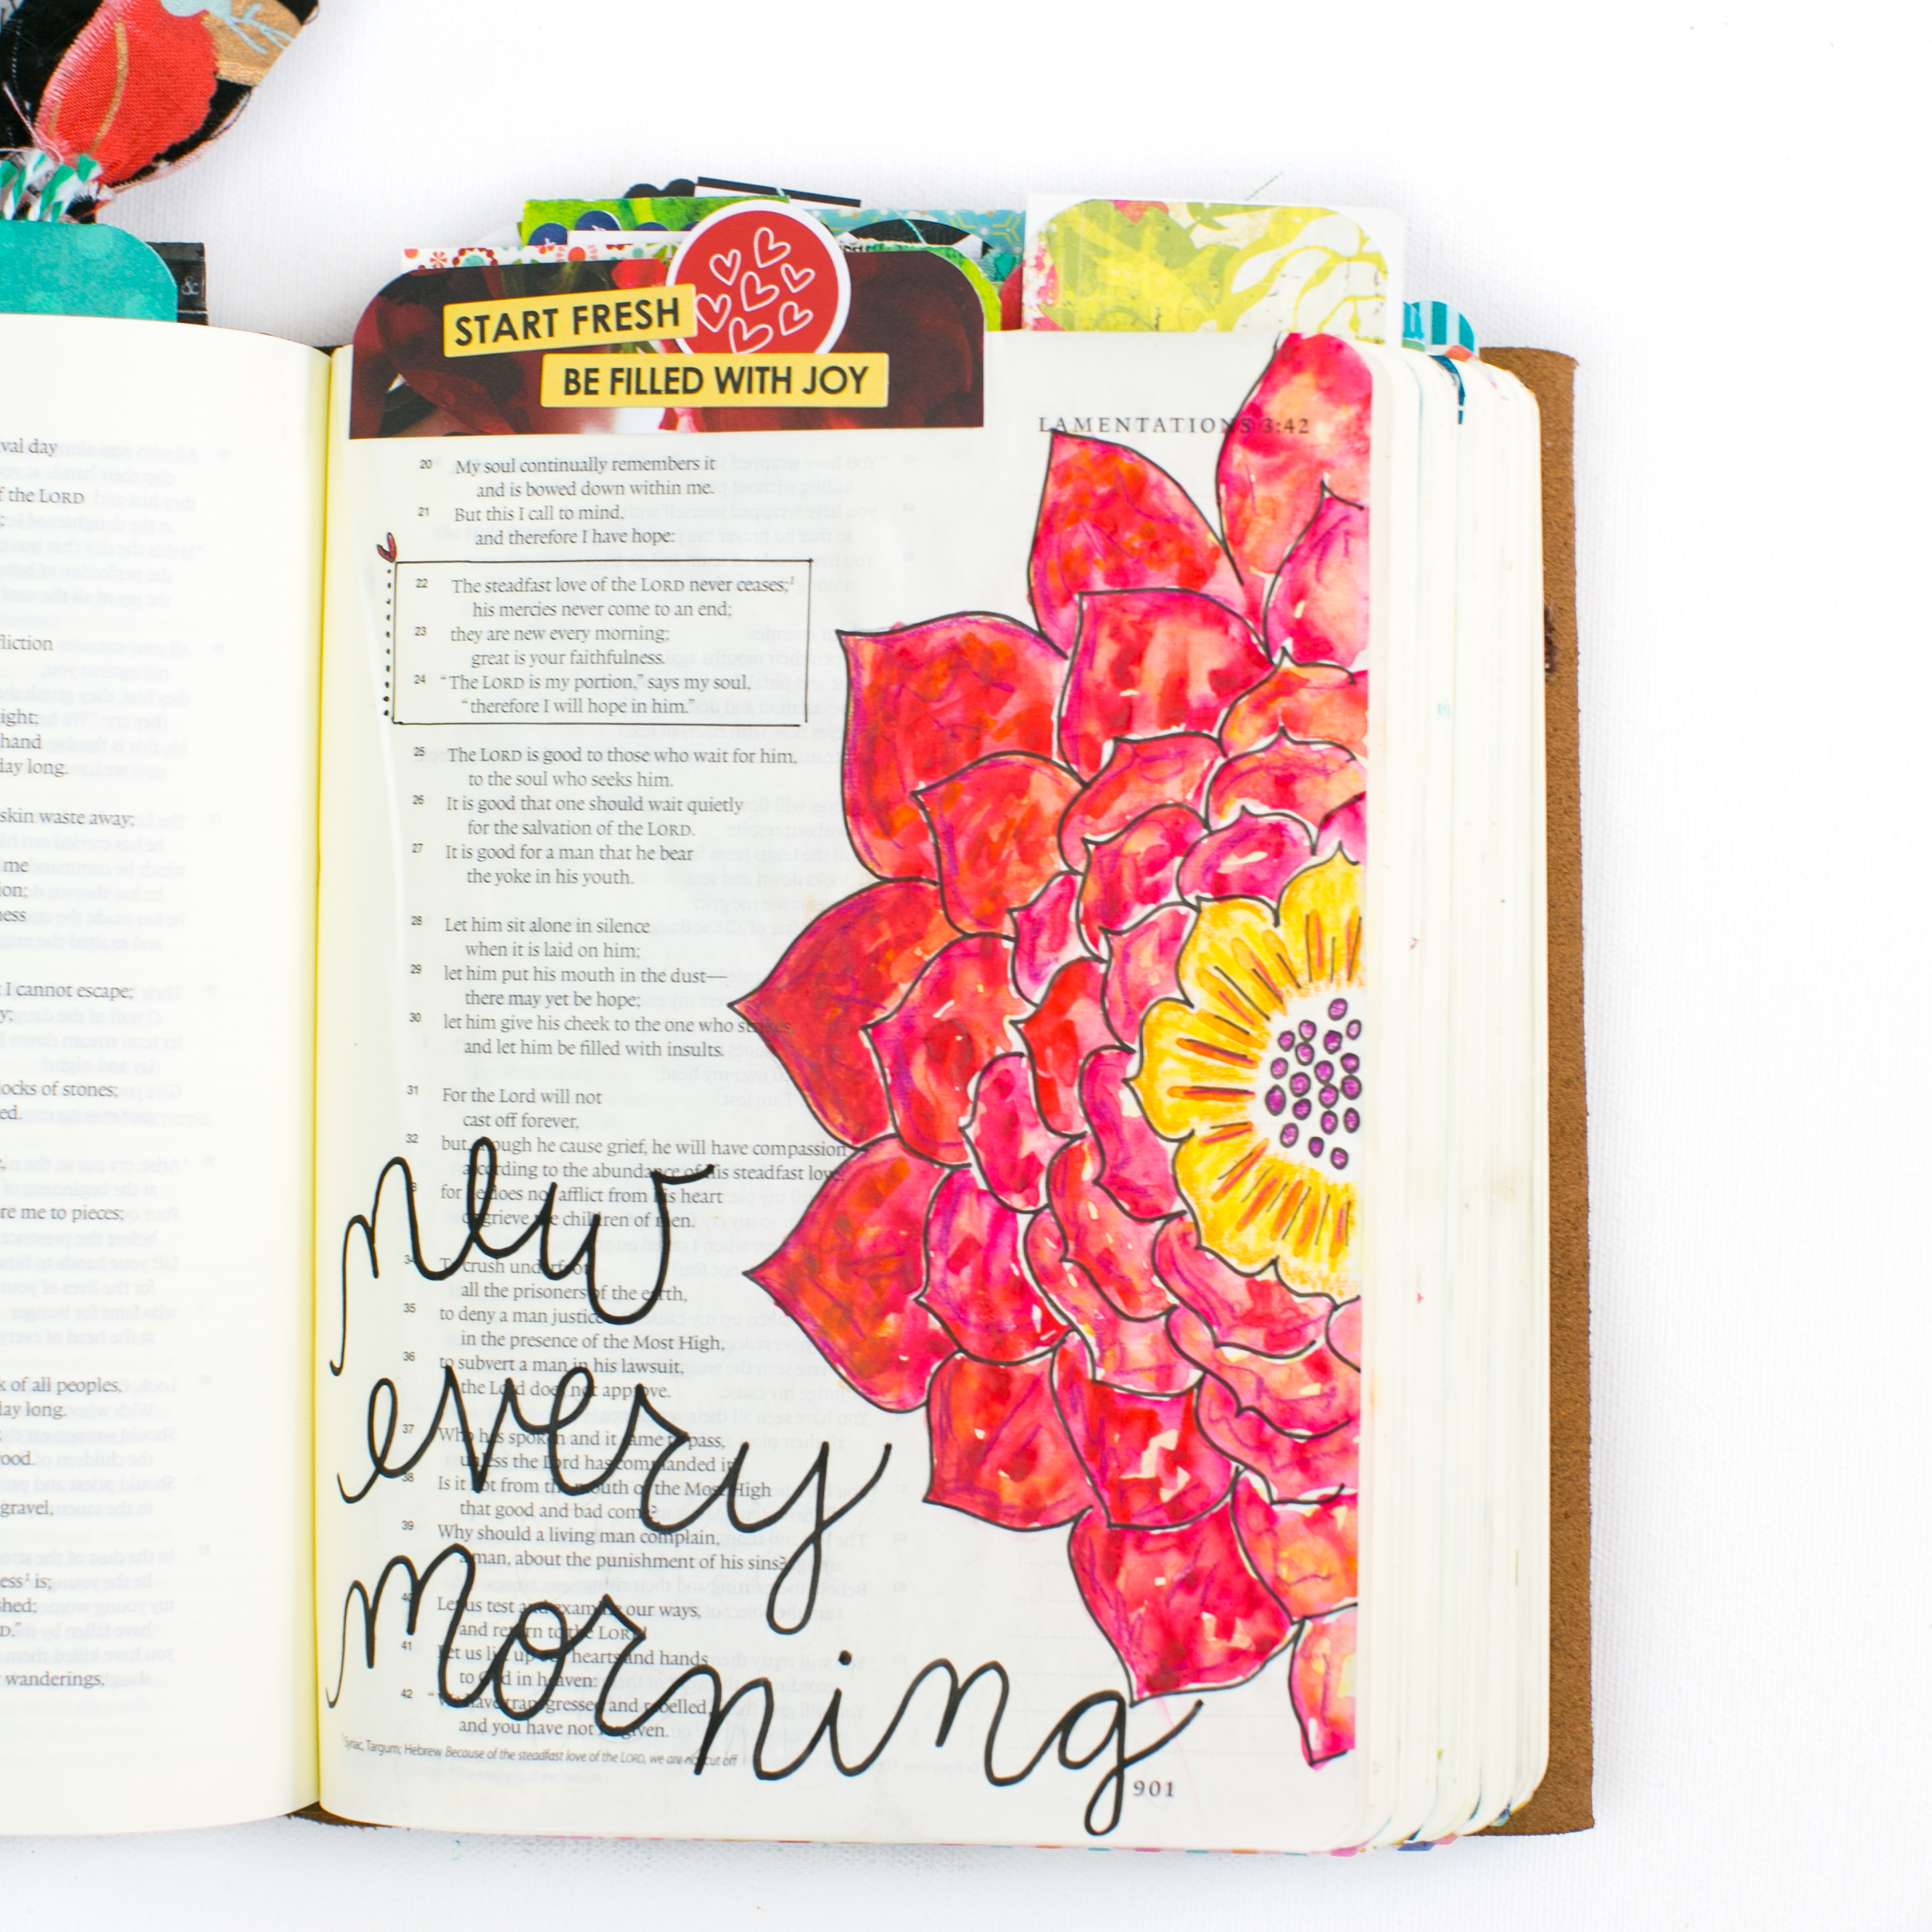 &
START FRESH
BE FILLED WITH JOY
LAMENTATIONS 3:42
val day
f the LORD
;
liction
ight;
hand
lay long.
skin waste away;
me
ion;
ness
I cannot escape;
y;
locks of stones;
ed.
re me to pieces;
k of all peoples,
lay long.
ood.
gravel,
ess¹ is;
shed;
D."
wanderings,
20 My soul continually remembers it
and is bowed down within me.
21 But this I call to mind,
and therefore I have hope:
22 The steadfast love of the LORD never ceases;¹
his mercies never come to an end;
23 they are new every morning;
great is your faithfulness.
24 “The LORD is my portion,” says my soul,
“therefore I will hope in him.”
25 The LORD is good to those who wait for him,
to the soul who seeks him.
26 It is good that one should wait quietly
for the salvation of the LORD.
27 It is good for a man that he bear
the yoke in his youth.
28 Let him sit alone in silence
when it is laid on him;
29 let him put his mouth in the dust—
there may yet be hope;
30 let him give his cheek to the one who strikes
and let him be filled with insults.
31 For the Lord will not
cast off forever,
32 but, though he cause grief, he will have compassion
according to the abundance of his steadfast love
for he does not afflict from his heart
or grieve the children of men.
34 To crush underfoot
all the prisoners of the earth,
35 to deny a man justice
in the presence of the Most High,
36 to subvert a man in his lawsuit,
the Lord does not approve.
37 Who has spoken and it came to pass,
unless the Lord has commanded it?
38 Is it not from the mouth of the Most High
that good and bad come?
39 Why should a living man complain,
a man, about the punishment of his sins?
40 Let us test and examine our ways,
and return to the LORD!
41 Let us lift up our hearts and hands
to God in heaven:
42 “We have transgressed and rebelled,
and you have not forgiven.
¹ Syriac, Targum; Hebrew Because of the steadfast love of the LORD, we are not cut off
new
every
morning
901